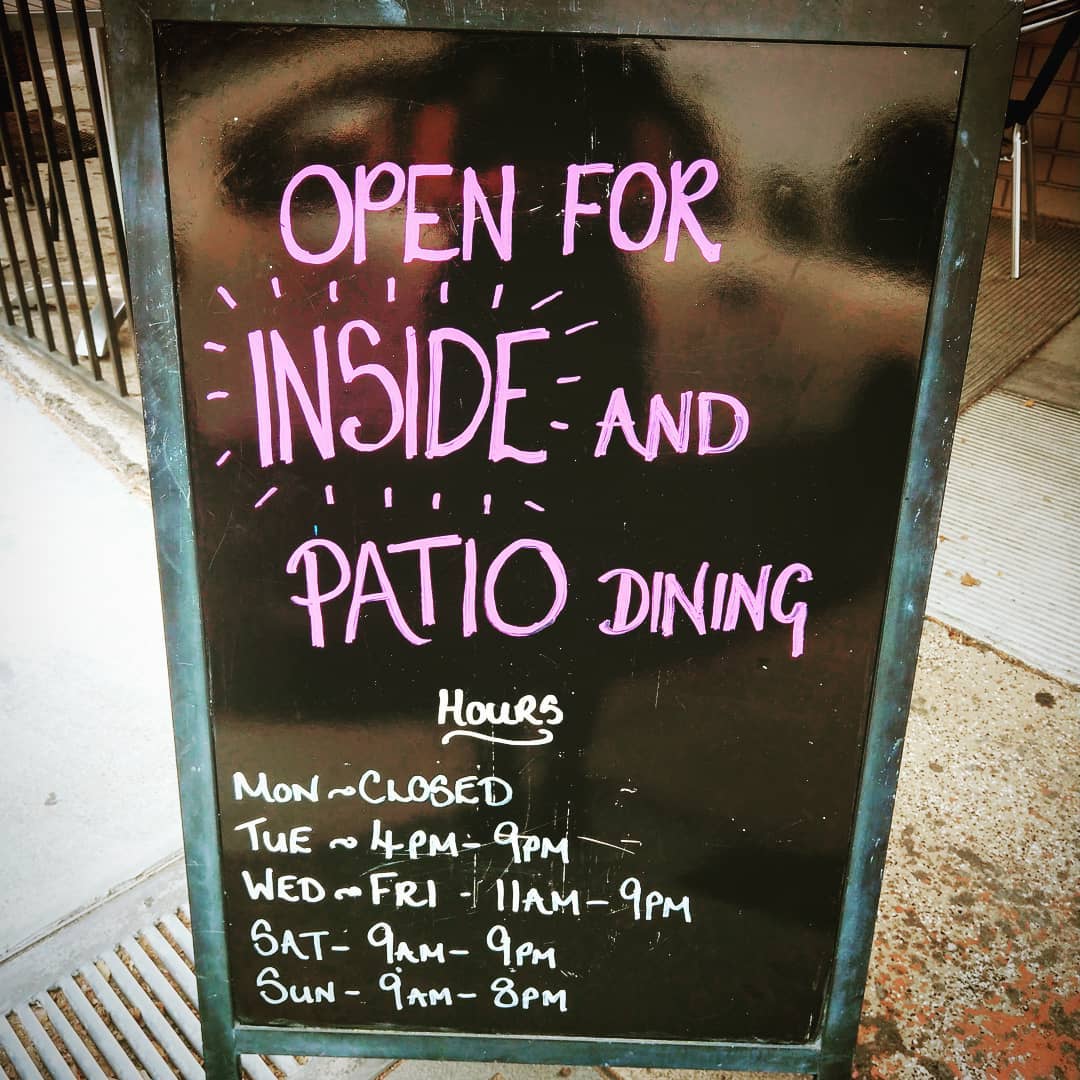 OPEN FOR
INSIDE AND
PATIO DINING
HOURS
MON ~ CLOSED
TUE ~ 4PM - 9PM
WED ~ FRI - 11AM - 9PM
SAT - 9AM - 9PM
SUN - 9AM - 8PM